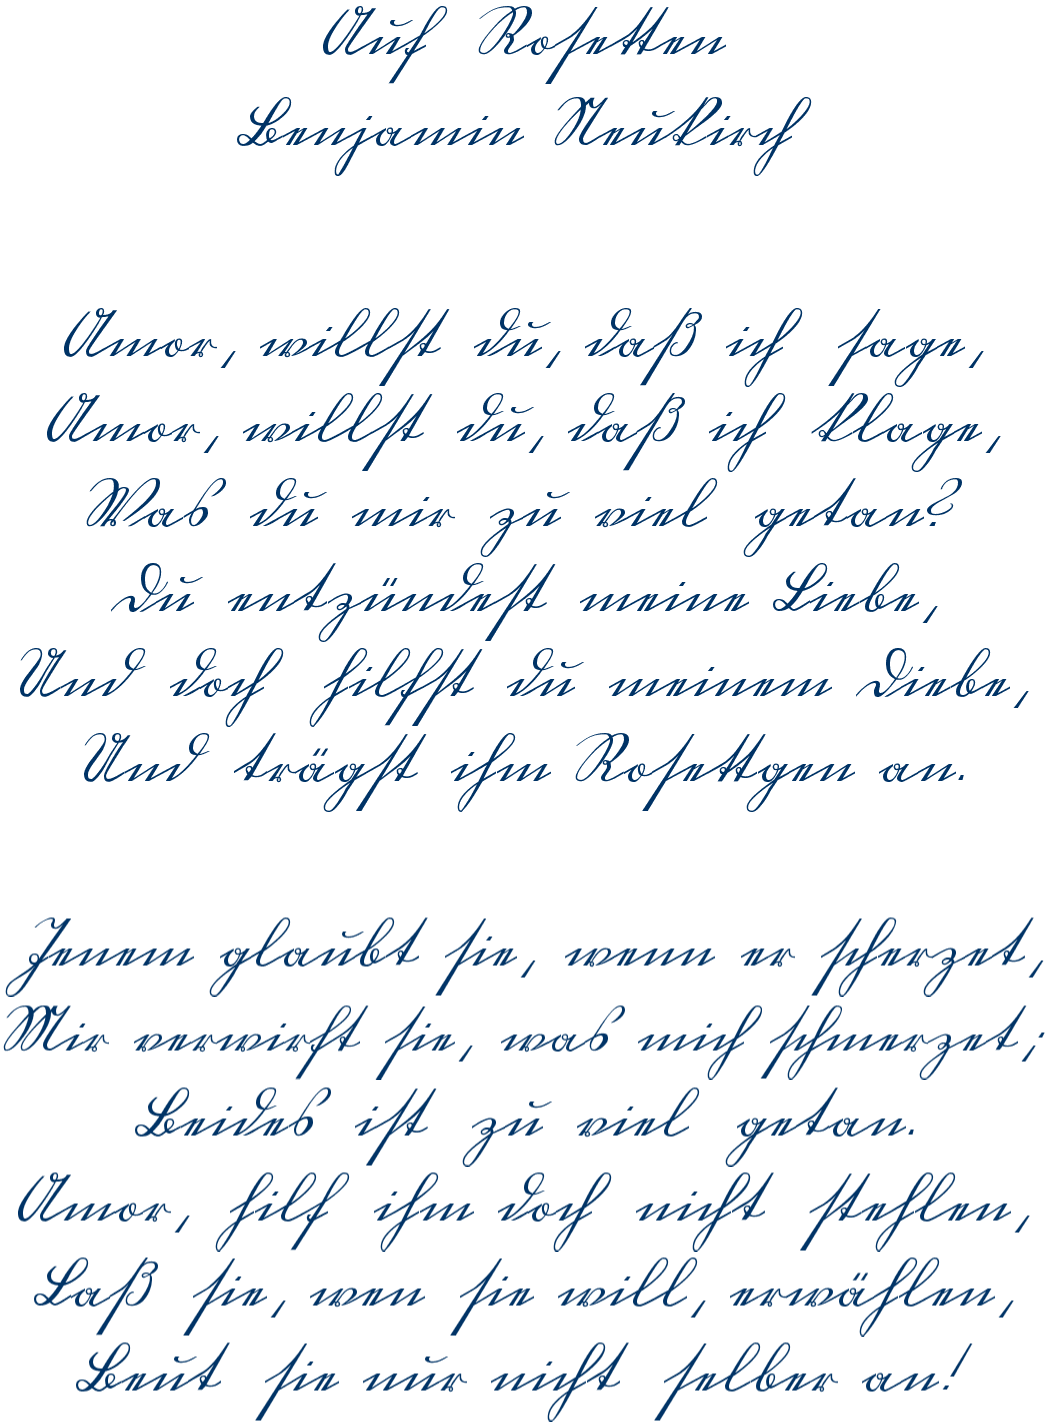 Auf Rosetten
Benjamin Neukirch
Amor, willst du, daß ich sage,
Amor, willst du, daß ich klage,
Was du mir zu viel getan?
Du entzündest meine Liebe,
Und doch hilfst du meinem Diebe,
Und trägst ihm Rosettgen an.
Jenem glaubt sie, wenn er scherzet,
Mir verwirft sie, was mich schmerzet;
Beides ist zu viel getan.
Amor, hilf ihm doch nicht stehlen,
Laß sie, wen sie will, erwählen,
Beut sie nur nicht selber an!